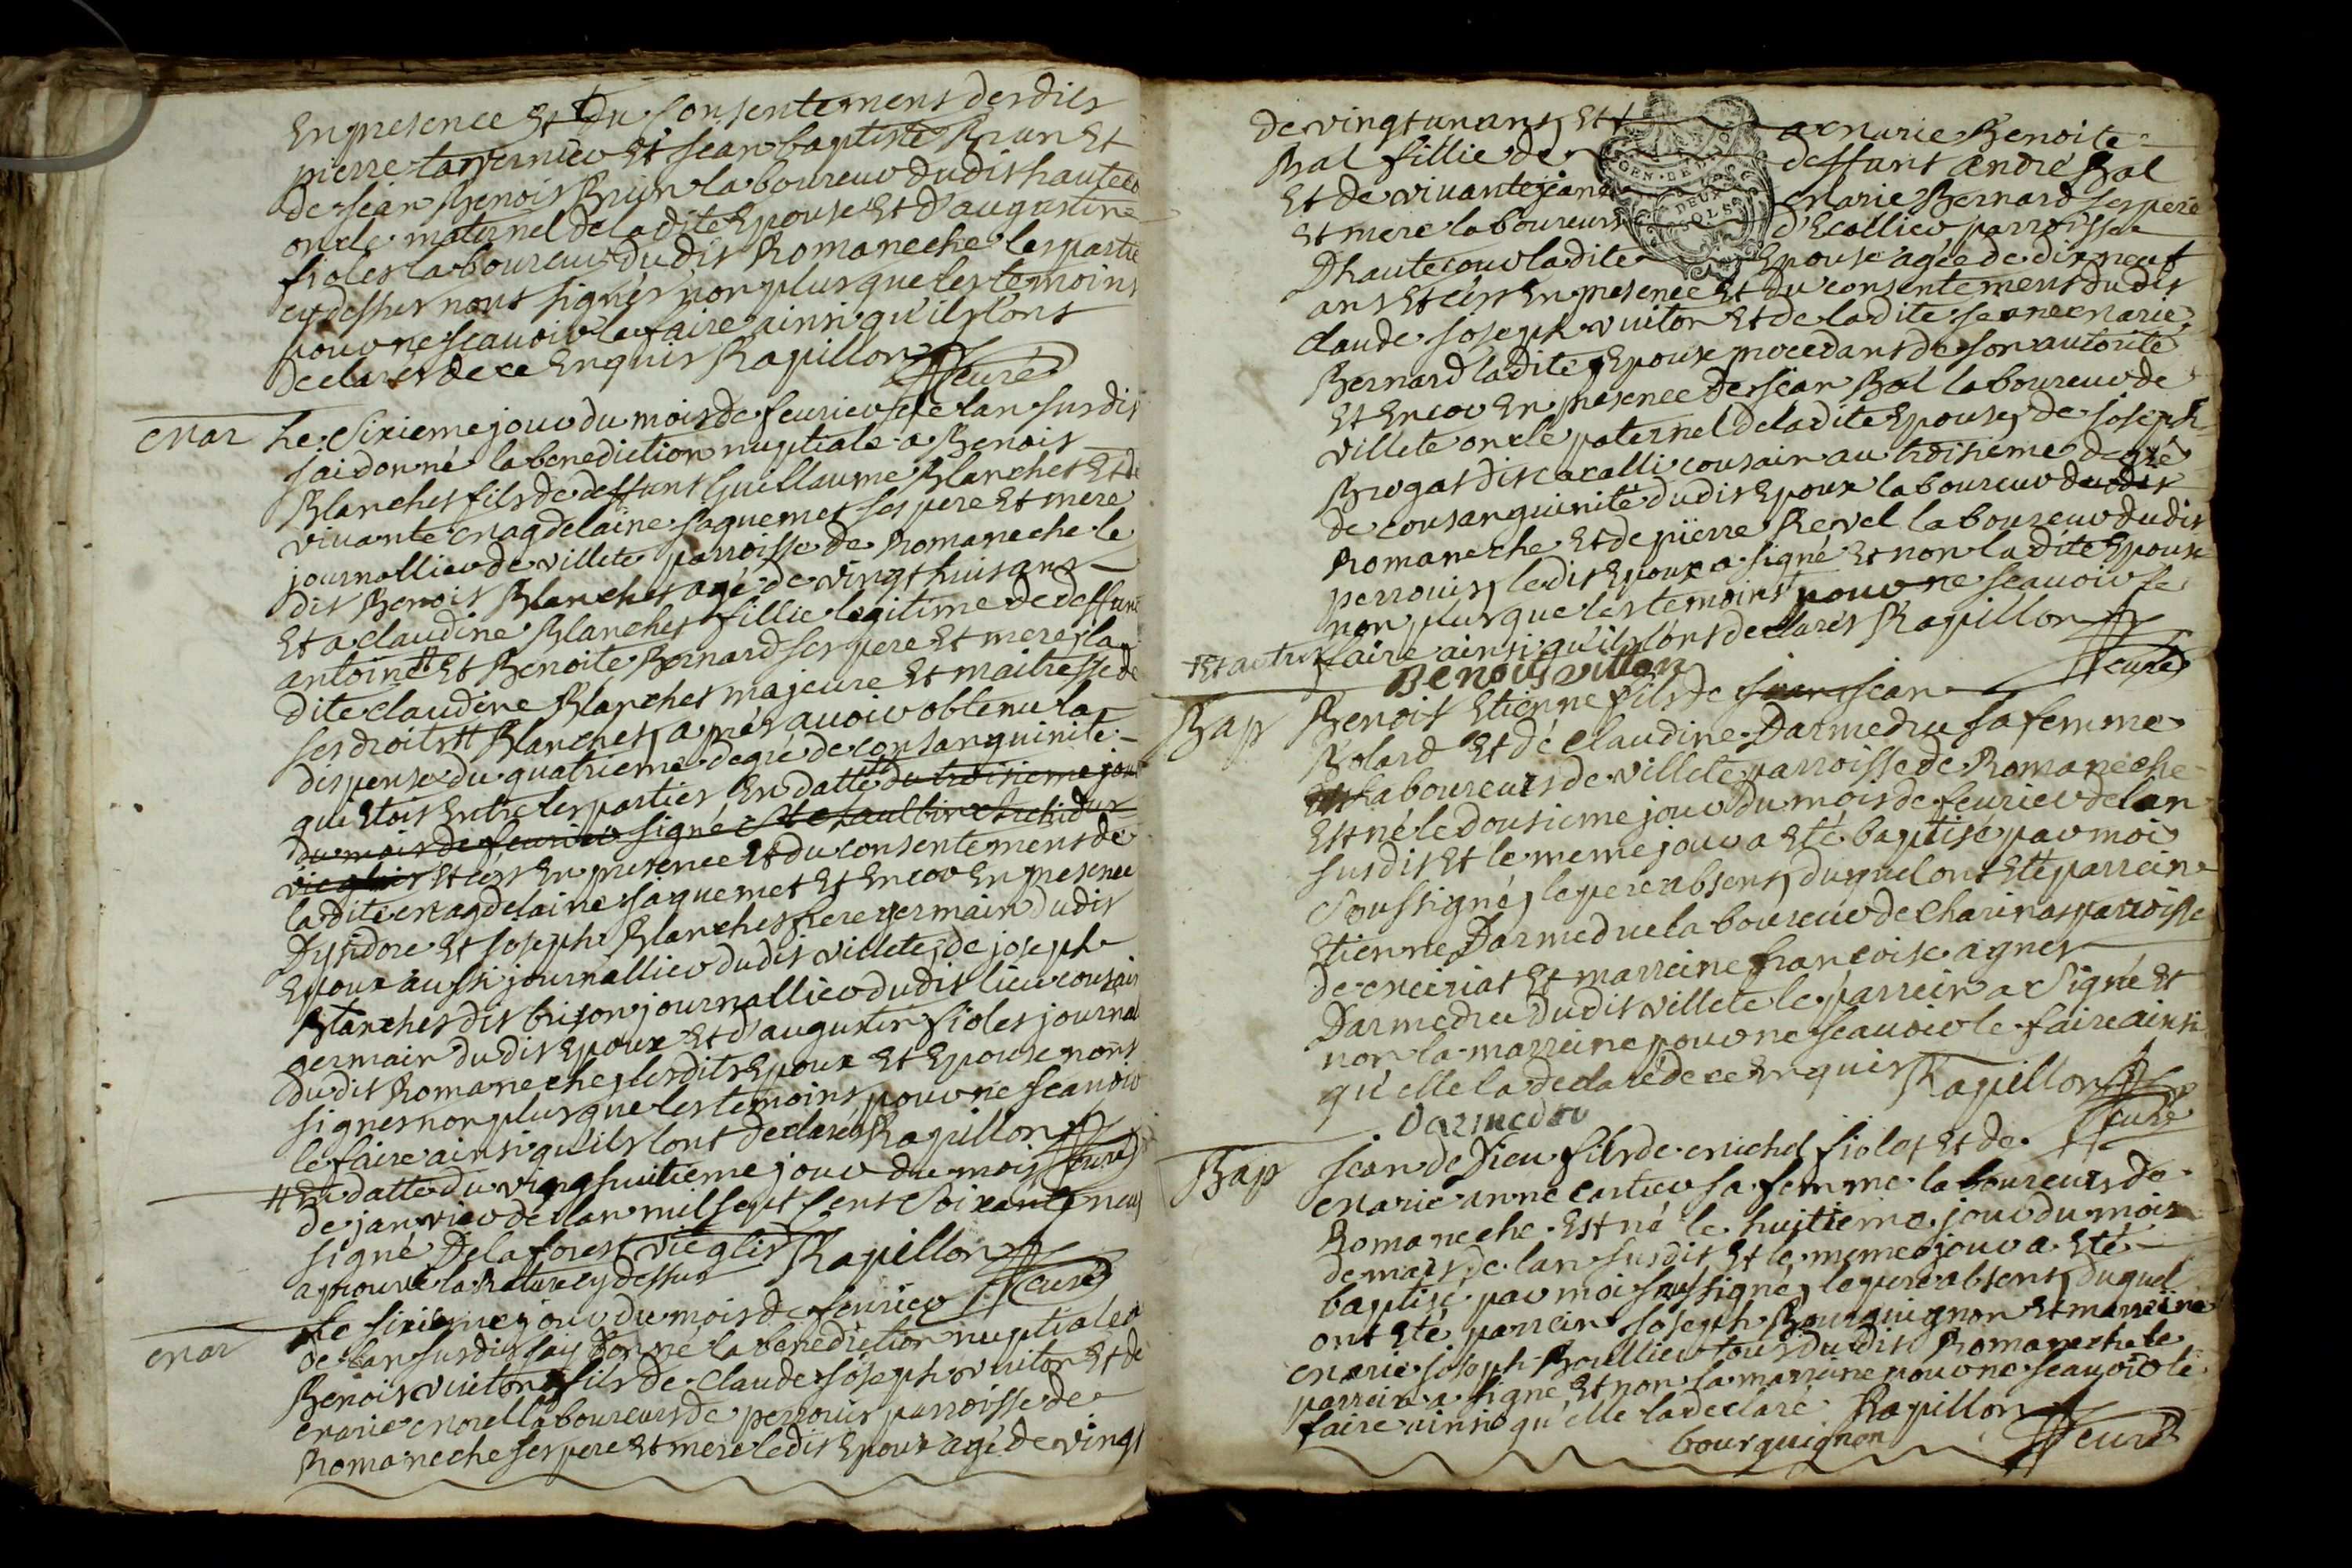 En presence Et Du Consentemens desdits
pierre tavernier Et Jean baptiste Brun Et
de Jean Benois Brun laboureur dudit hautecour
oncle maternel de la dite Epouse Et d'augustin
fiolet laboureur dudit Romaneche les parties
cy dessus nont signés non plus que les temoins
pour ne scauoir le faire ainsi qu'ils lont
declarés de ce Enquis Rapillon
curé
Mar Le Sixieme jour du mois de feurier de lan susdit
j'ai donné la benediction nuptiale a Benois
Blanchet fils de deffunt Guillaume Blanchet Et de
viuante Magdelaine Jaquemet ses pere Et mere
journallier de villete parroisse de Romaneche le
dit Benois Blanchet agé de vingt huit ans
Et a claudine Blanchet fillie legitime de deffunt
antoine # Et Benoite Bernard ses pere Et mere la
dite claudine Blanchet majeure Et maitresse de
ses droits # Blanchet, aprés auoir obtenu la
dispense du quatrieme degre de consanguinité
qui Etoit Entre les parties En datte du troisieme jour
du mois de feurier signé
vieglis Et ce En presence Et du consentemens de
la dite Magdelaine Jaquemet Et Encor En presence
D'ysidore Et Joseph Blanchet frere germain dudit
Epoux aussi journallier dudit villete, de joseph
Blanchet dit brison journallier dudit lieu cousain
germain dudit Epoux Et d'augustin fiolet journal
dudit Romaneche, lesdits Epoux Et Epouse nont
signes non plus que les temoins pour ne scauoir
le faire ainsi qu'ils lont declarés Rapillon
curé
# En datte du vingt huitieme jour du mois
de janvier de lan mil sept sent Soixante neuf
signé Delaforest vieglis Rapillon
aprouvé la Rature cy dessus
curé
Mar Le Sixieme jour du mois de feurier
de lan susdit jaÿ donné la benediction nuptiale a
Benois vuiton fils de claude Joseph vuiton Et de
Marie Morel laboureurs de perrouis parroisse de
Romaneche ses pere Et mere ledit Epoux agé de vingt
de vingt un ans, Et a Marie Benoite
Bal fillie de deffunt andré Bal
Et de viuante jeane Marie Bernard ses pere
Et mere laboureurs d'Ecollieu parroisse
D'hautecour la dite Epouse agée de dix neuf
ans Et ce En presence Et du consentemens dudit
claude Joseph vuiton Et de la dite Jeane Marie
Bernard la dite Epouse procedant de son autorité
Et Encor En presence de Jean Bal laboureur de
villete oncle paternel de la dite Epouse, de Joseph
Brogat dit cacalli cousain au troisieme degré
de consanguinité dudit Epoux laboureur dudit
Romaneche Et de pierre Revel laboureur dudit
perrouis, ledit Epoux a signé Et non la dite Epouse
non plus que les temoins pour ne scauoir le
+ Et autres faire ainsi qu'ils lont declarés Rapillon
Benois vitton
curé
Bap Benois Etienne fils de Jean Jean
Bolard Et de Claudine Darmedru sa femme
laboureurs de villete parroisse de Romaneche
Est né le dousieme jour du mois de feurier de lan
susdit Et le meme jour a Eté baptisé par moi
Soussigné, le pere absent, duquel ont Eté parrein
Etienne Darmedru laboureur de Charinas parroisse
de Meiriat Et marreine françoise agnes
Darmedru dudit villete le parrein a Signé Et
non la marreine pour ne scauoir le faire ainsi
qu'elle la declaré de ce Enquis Rapillon
Darmedru
curé
Bap Jean de Dieu fils de Michel fiolet Et de
Marie anne Cartier sa femme laboureurs de
Romaneche Est né le huitieme jour du mois
de mars de lan susdit Et le meme jour a Eté
baptisé par moi soussigné, le pere absent, duquel
ont Eté parrein Joseph Bourguignon Et marreine
Marie Joseph Boullier tous dudit Romaneche le
parrein a signé Et non la marreine pour ne scauoir le
faire ainsi qu'elle la declaré Rapillon
bourguignon
curé